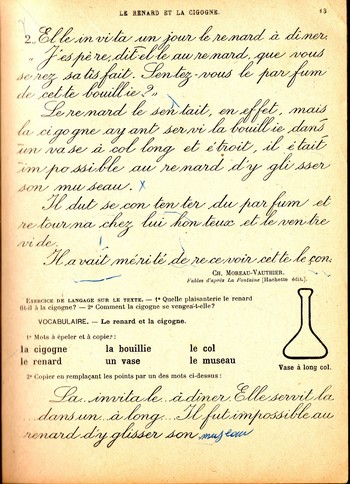 LE RENARD ET LA CIGOGNE. 13
2. El le in vi ta un jour le re nard à di ner.
"J'es pè re, dit-el le au re nard, que vous
se rez sa tis fait. Sen tez-vous le par fum
de cet te bouil lie ?"
Le re nard le sen tait, en ef fet, mais
la ci go gne ay ant ser vi la bouil lie dans
un va se à col long et é troit, il é tait
im po ssi ble au re nard d'y gli sser
son mu seau.
Il dut se con ten ter du par fum et
re tour na chez lui hon teux et le ven tre
vi de.
Il a vait mé ri té de re ce voir cet te le çon.
CH. MOREAU-VAUTHIER.
Fables d'après La Fontaine [Hachette édit.].
EXERCICE DE LANGAGE SUR LE TEXTE. — 1° Quelle plaisanterie le renard
fit-il à la cigogne ? — 2° Comment la cigogne se venge-t-elle ?
VOCABULAIRE. — Le renard et la cigogne.
1° Mots à épeler et à copier :
la cigogne la bouillie le col
le renard un vase le museau
Vase à long col.
2° Copier en remplaçant les points par un des mots ci-dessus :
La... invita le... à dîner. Elle servit la
... dans un... à long... Il fut impossible au
renard d'y glisser son museau